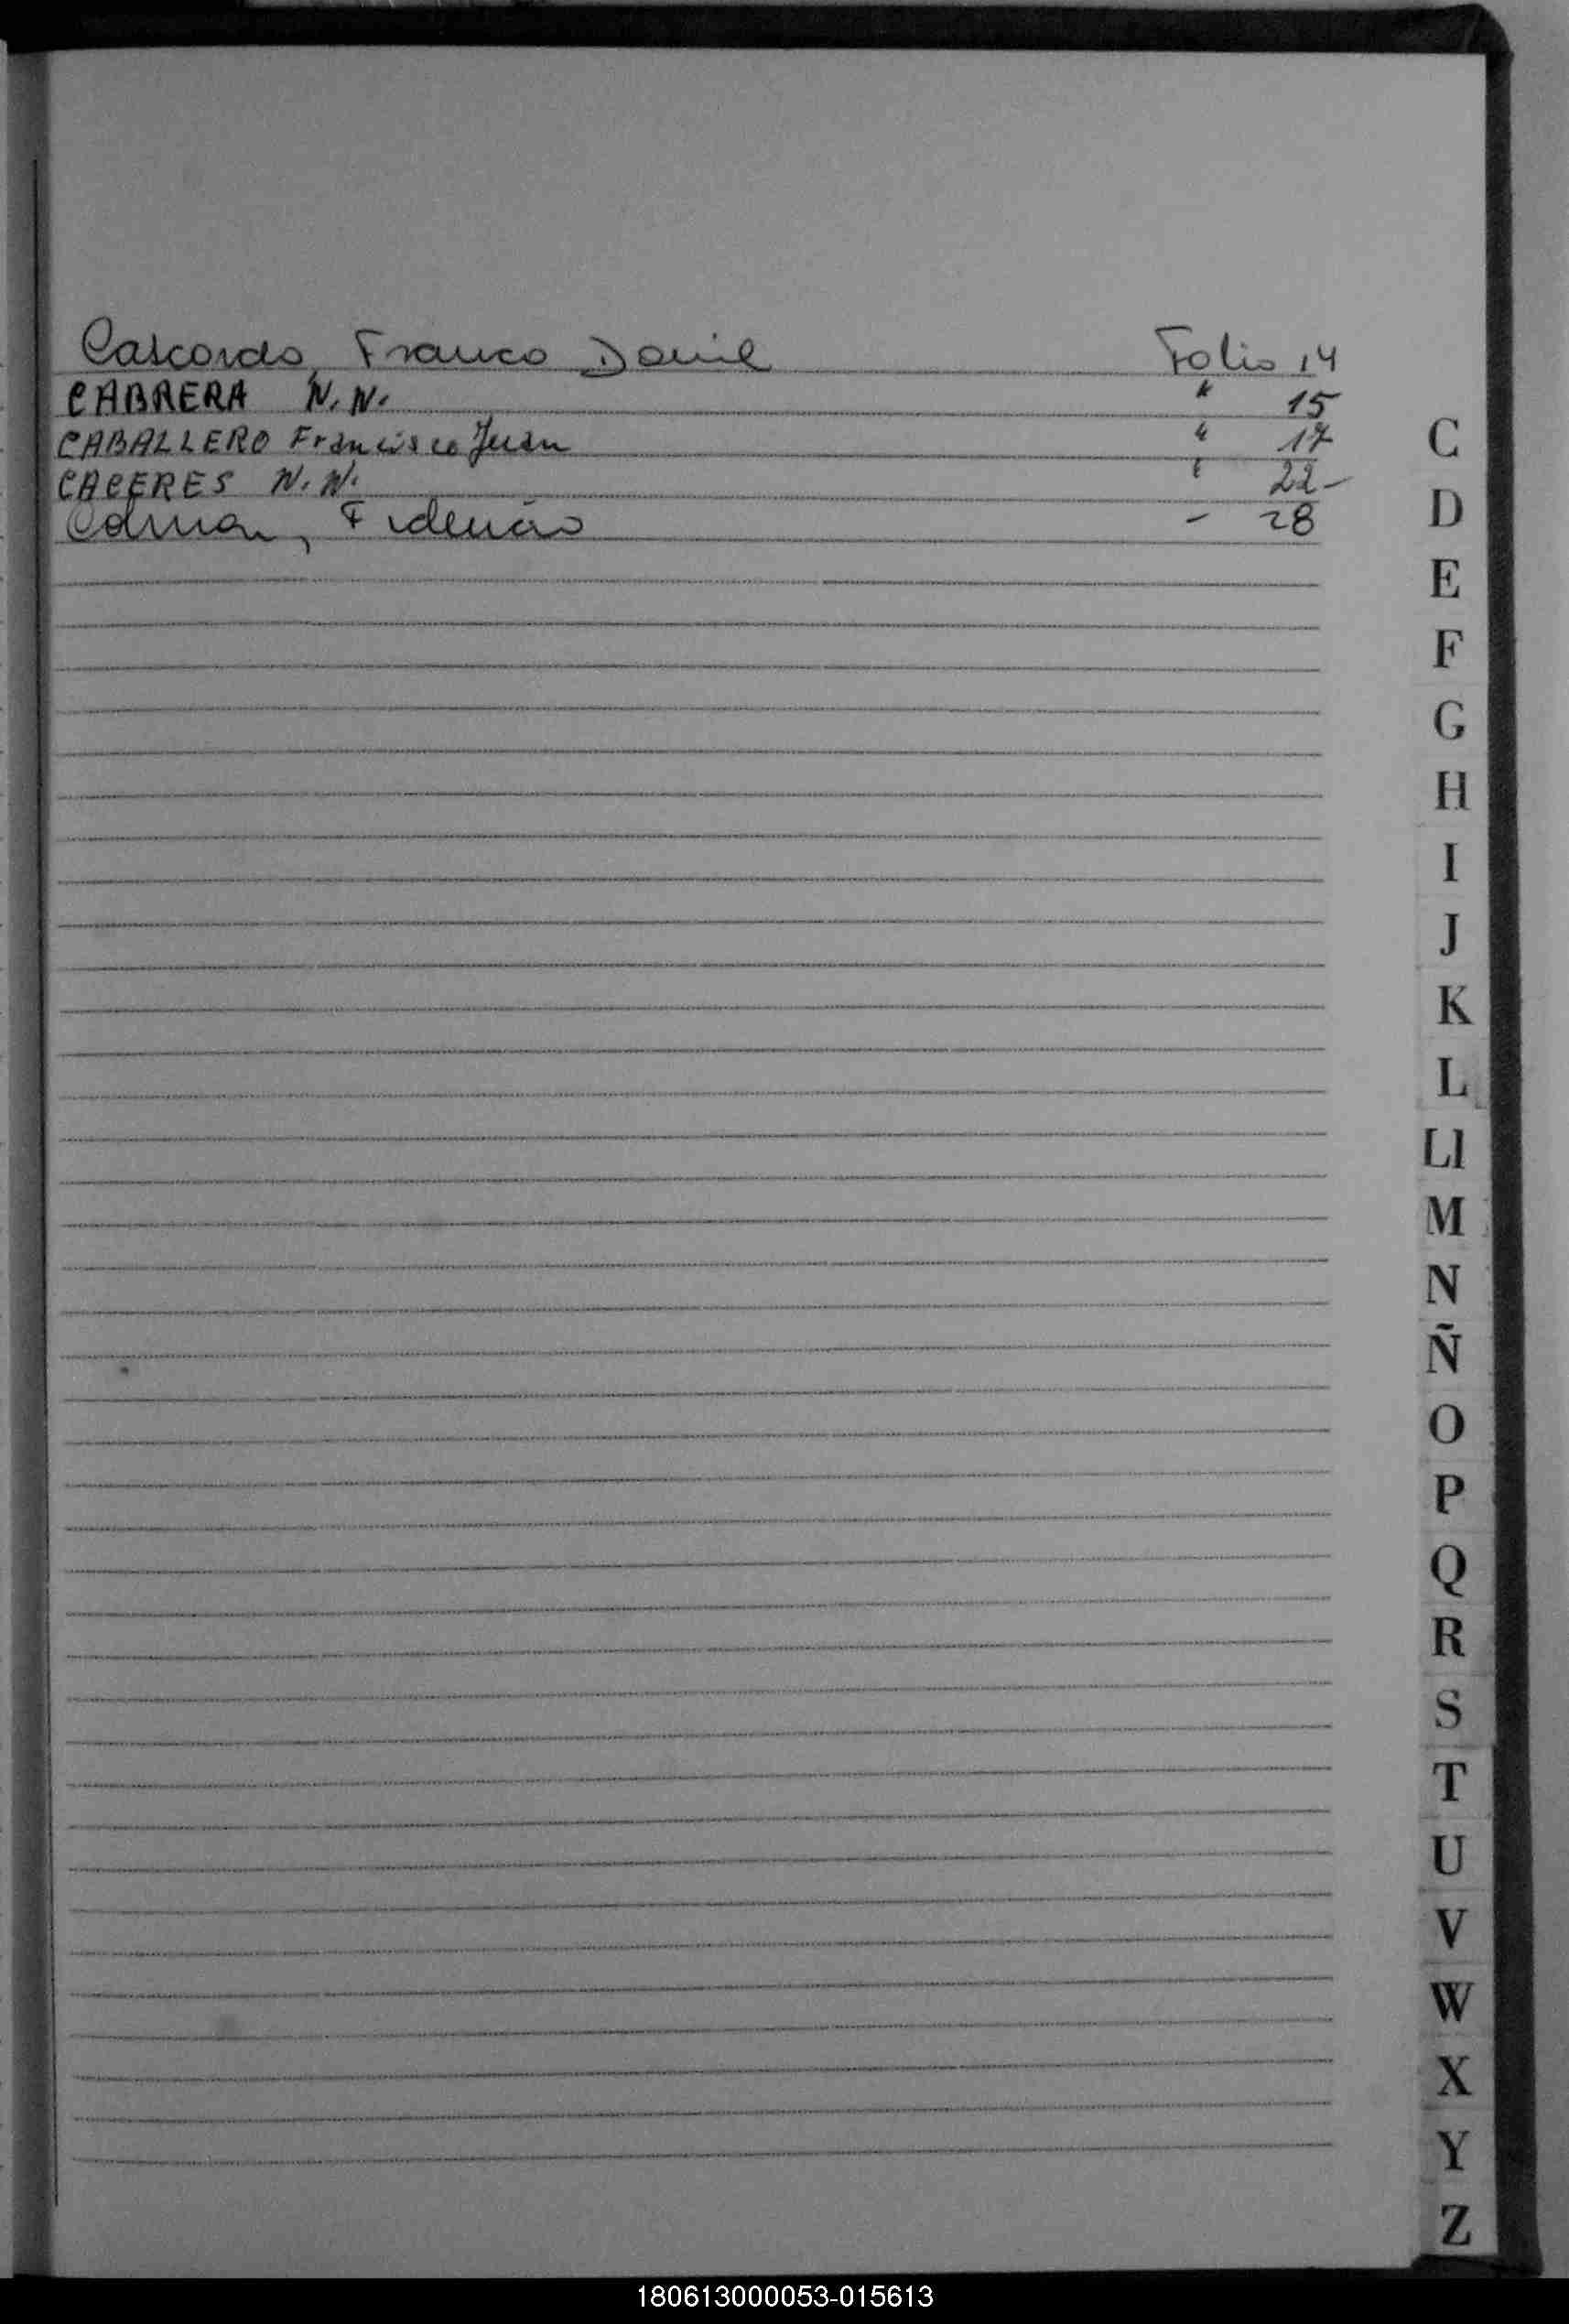 Cascardo, Franco Daniel Folio 14
CABRERA N.N. " 15
CABALLERO Francisco Juan " 17
CACERES N.N. " 22-
Fidencio - 28
C
D
E
F
G
H
I
J
K
L
Ll
M
N
Ñ
O
P
Q
R
S
T
U
V
W
X
Y
Z
180613000053-015613